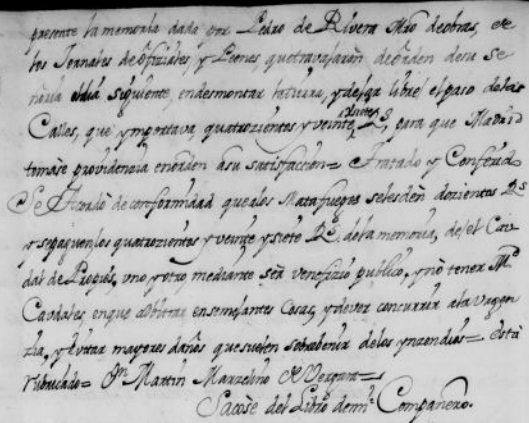 presente la memoria dada por Pedro de Rivera Mro deobras, de
los Jornales de ofiziales, y Peones, quetravajaron deorden desu se
ñoria eldia siguiente, endesmontar la ruina, ydejar libre el paso delas
Calles, que ymportava quatrozientos y veinte ysiete Rs, para que Madrid
tomase providenzia enorden asu satisfaccion= Tratado y Conferido
Se Acordò deconformidad quealos Matafuegos selesdèn dozientos Rs
y sepaguen los quatrozientos y veinte y siete Rs dela memoria, de el Cau
dal de Propios, uno y otro mediante ser venefizio publico, y no tener Md
Caudales enque adbitrar ensemejantes Cosas, y dever concurrir ala Urgen
zia, y evitar mayores daños quesuelen sobrebenir delos ynzendios= Està
rubricado= Dn Martin Marzelino de Vergara=
Sacòse del Libro demi Compañero.